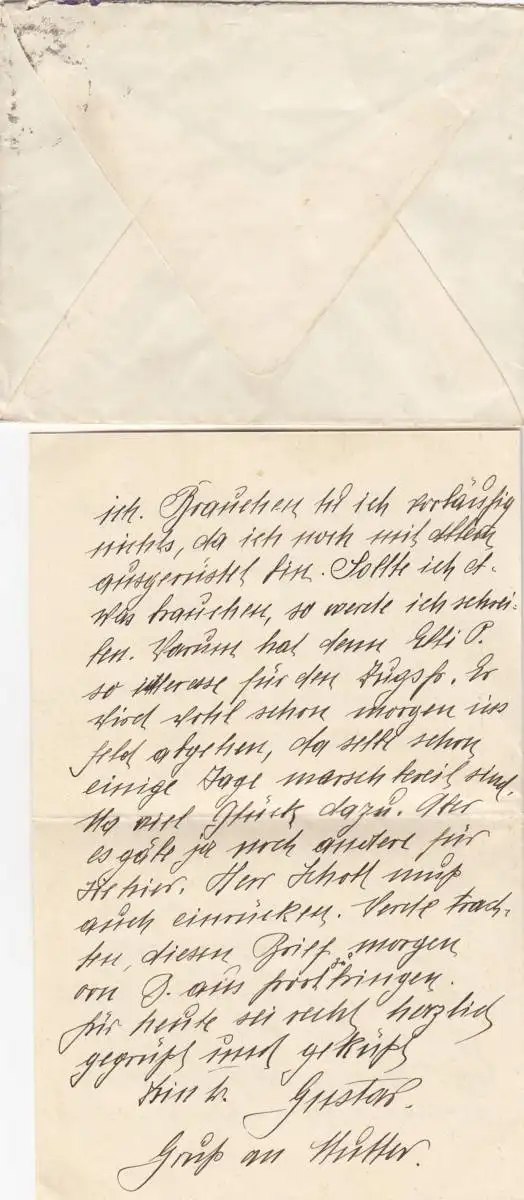 ich. Brauchen tu ich vorläufig
nichts, da ich noch mit allem
ausgerüstet bin. Sollte ich et-
was brauchen, so werde ich schrei-
ben. Warum hat denn Elli P.
so interesse für den Zugsf. Er
wird wohl schon morgen ins
feld abgehen, da selbe schon
einige Tage marschbereit sind.
Na viel Glück dazu. Aber
es gäbe ja noch andere für
hier. Herr Scholl muß
auch einrücken. Werde trach-
ten, diesen Brief morgen
von D. aus fortzubringen.
für heute sei recht herzlich
gegrüßt und geküßt
Dein tr. Gustav.
Gruß an Mutter.